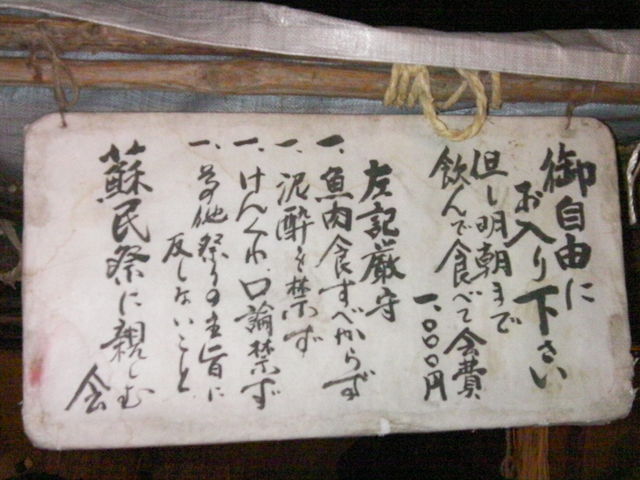 御自由に
お入り下さい
但し明朝まで
飲んで食べて会費
一、〇〇〇円
左記厳守
一、魚肉食すべからず
一、泥酔を禁ず
一、けんくわ、口論禁ず
一、其他祭りの主旨に
反しないこと
蘇民祭に親しむ
会